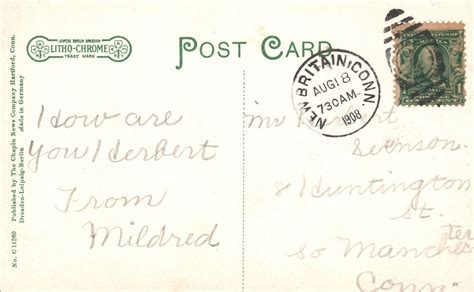 LEIPZIG BERLIN DRESDEN
LITHO-CHROME
TRADE MARK
POST CARD
NEW BRITAIN, CONN
AUG 18
730 AM
1908
1
Published by The Chapin News Company Hartford, Conn.
Dresden-Leipzig-Berlin
Made in Germany
No. C 11260
How are
you Herbert
From
Mildred
Mr Herbert
Swenson
8 Huntington
St.
So Manchester
Conn